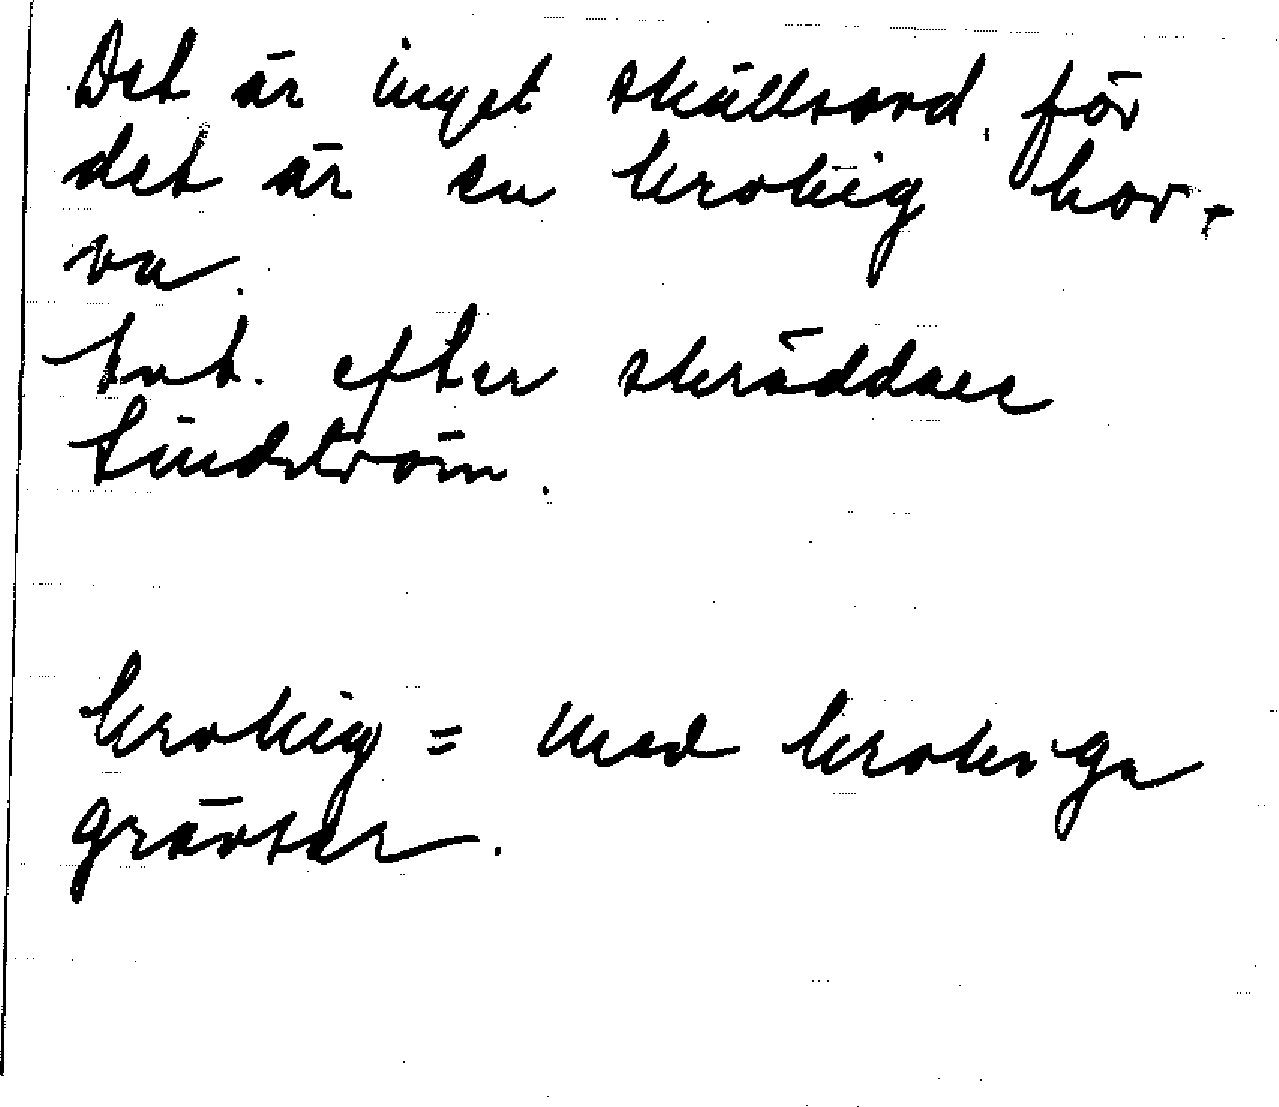 Det är inget skällsord, för
det är en krokig hor-
va.
efter skräddare
Lindström.
krokig = med krokiga